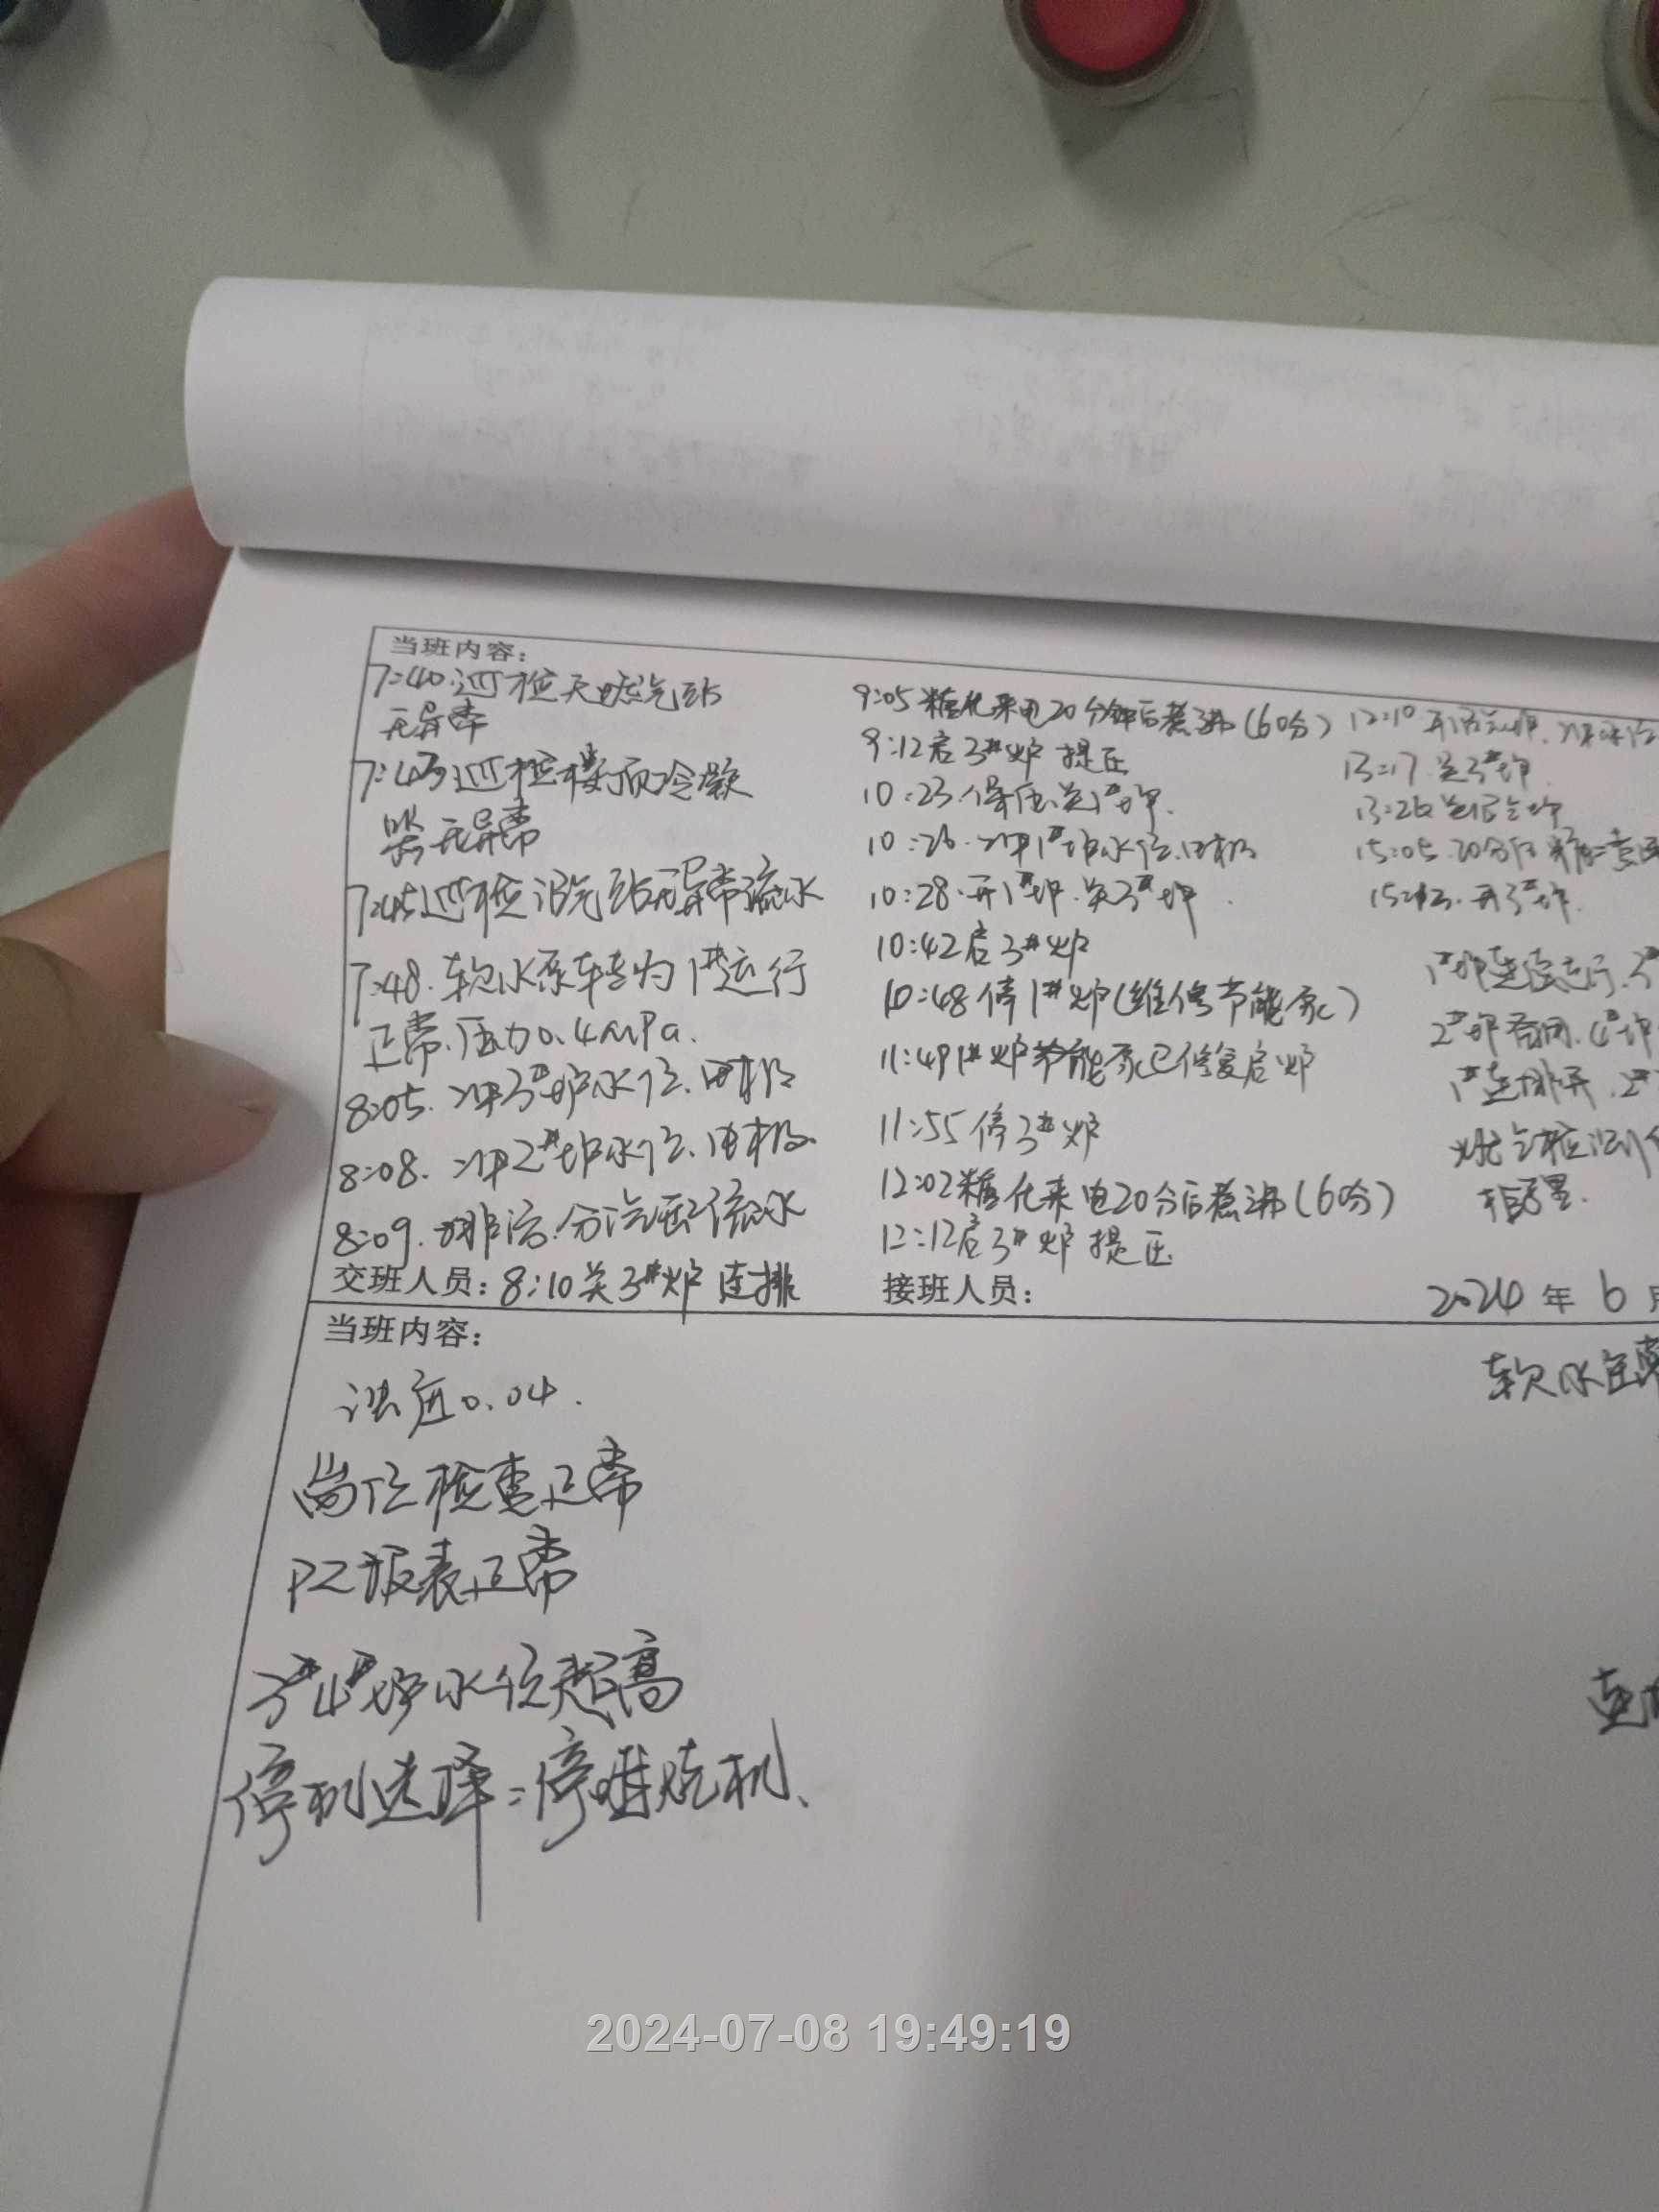 当班内容：
7:40.巡检天燃气站
无异常
7:43巡检楼顶冷凝
器无异常
7:45巡检沼气站无异常疏水
7:48.软水泵转为1#运行
正常.压力0.4MPa.
8:05.冲3#炉水位.电极
8:08.冲2#炉水位.电极
8:09.排污.分汽缸疏水
交班人员：8:10关3#炉连排
9:05糖化来电20分钟后煮沸(60分)
9:12启3#炉提压
10:23.保压.关1#炉.
10:26.冲1#炉水位.电极
10:28.开1#炉.关3#炉
10:42启3#炉
10:48停1#炉(维修节能泵)
11:49 1#炉节能泵已修复启炉
11:55停3#炉
12:02糖化来电20分后煮沸(60分)
12:12启3#炉提压
接班人员：
13:17.关3#炉.
13:26关沼气炉
15:05.20分后糖二煮沸
开3#炉.
1#炉连续运行.3#
2#炉备用.4#炉
1#连排开.2#
烟气检测
2024年6月
当班内容：
浓度0.04.
岗位检查正常
PZ报表正常
3#4#炉水位超高
停机选择=停燃烧机、
软水
连
2024-07-08 19:49:19